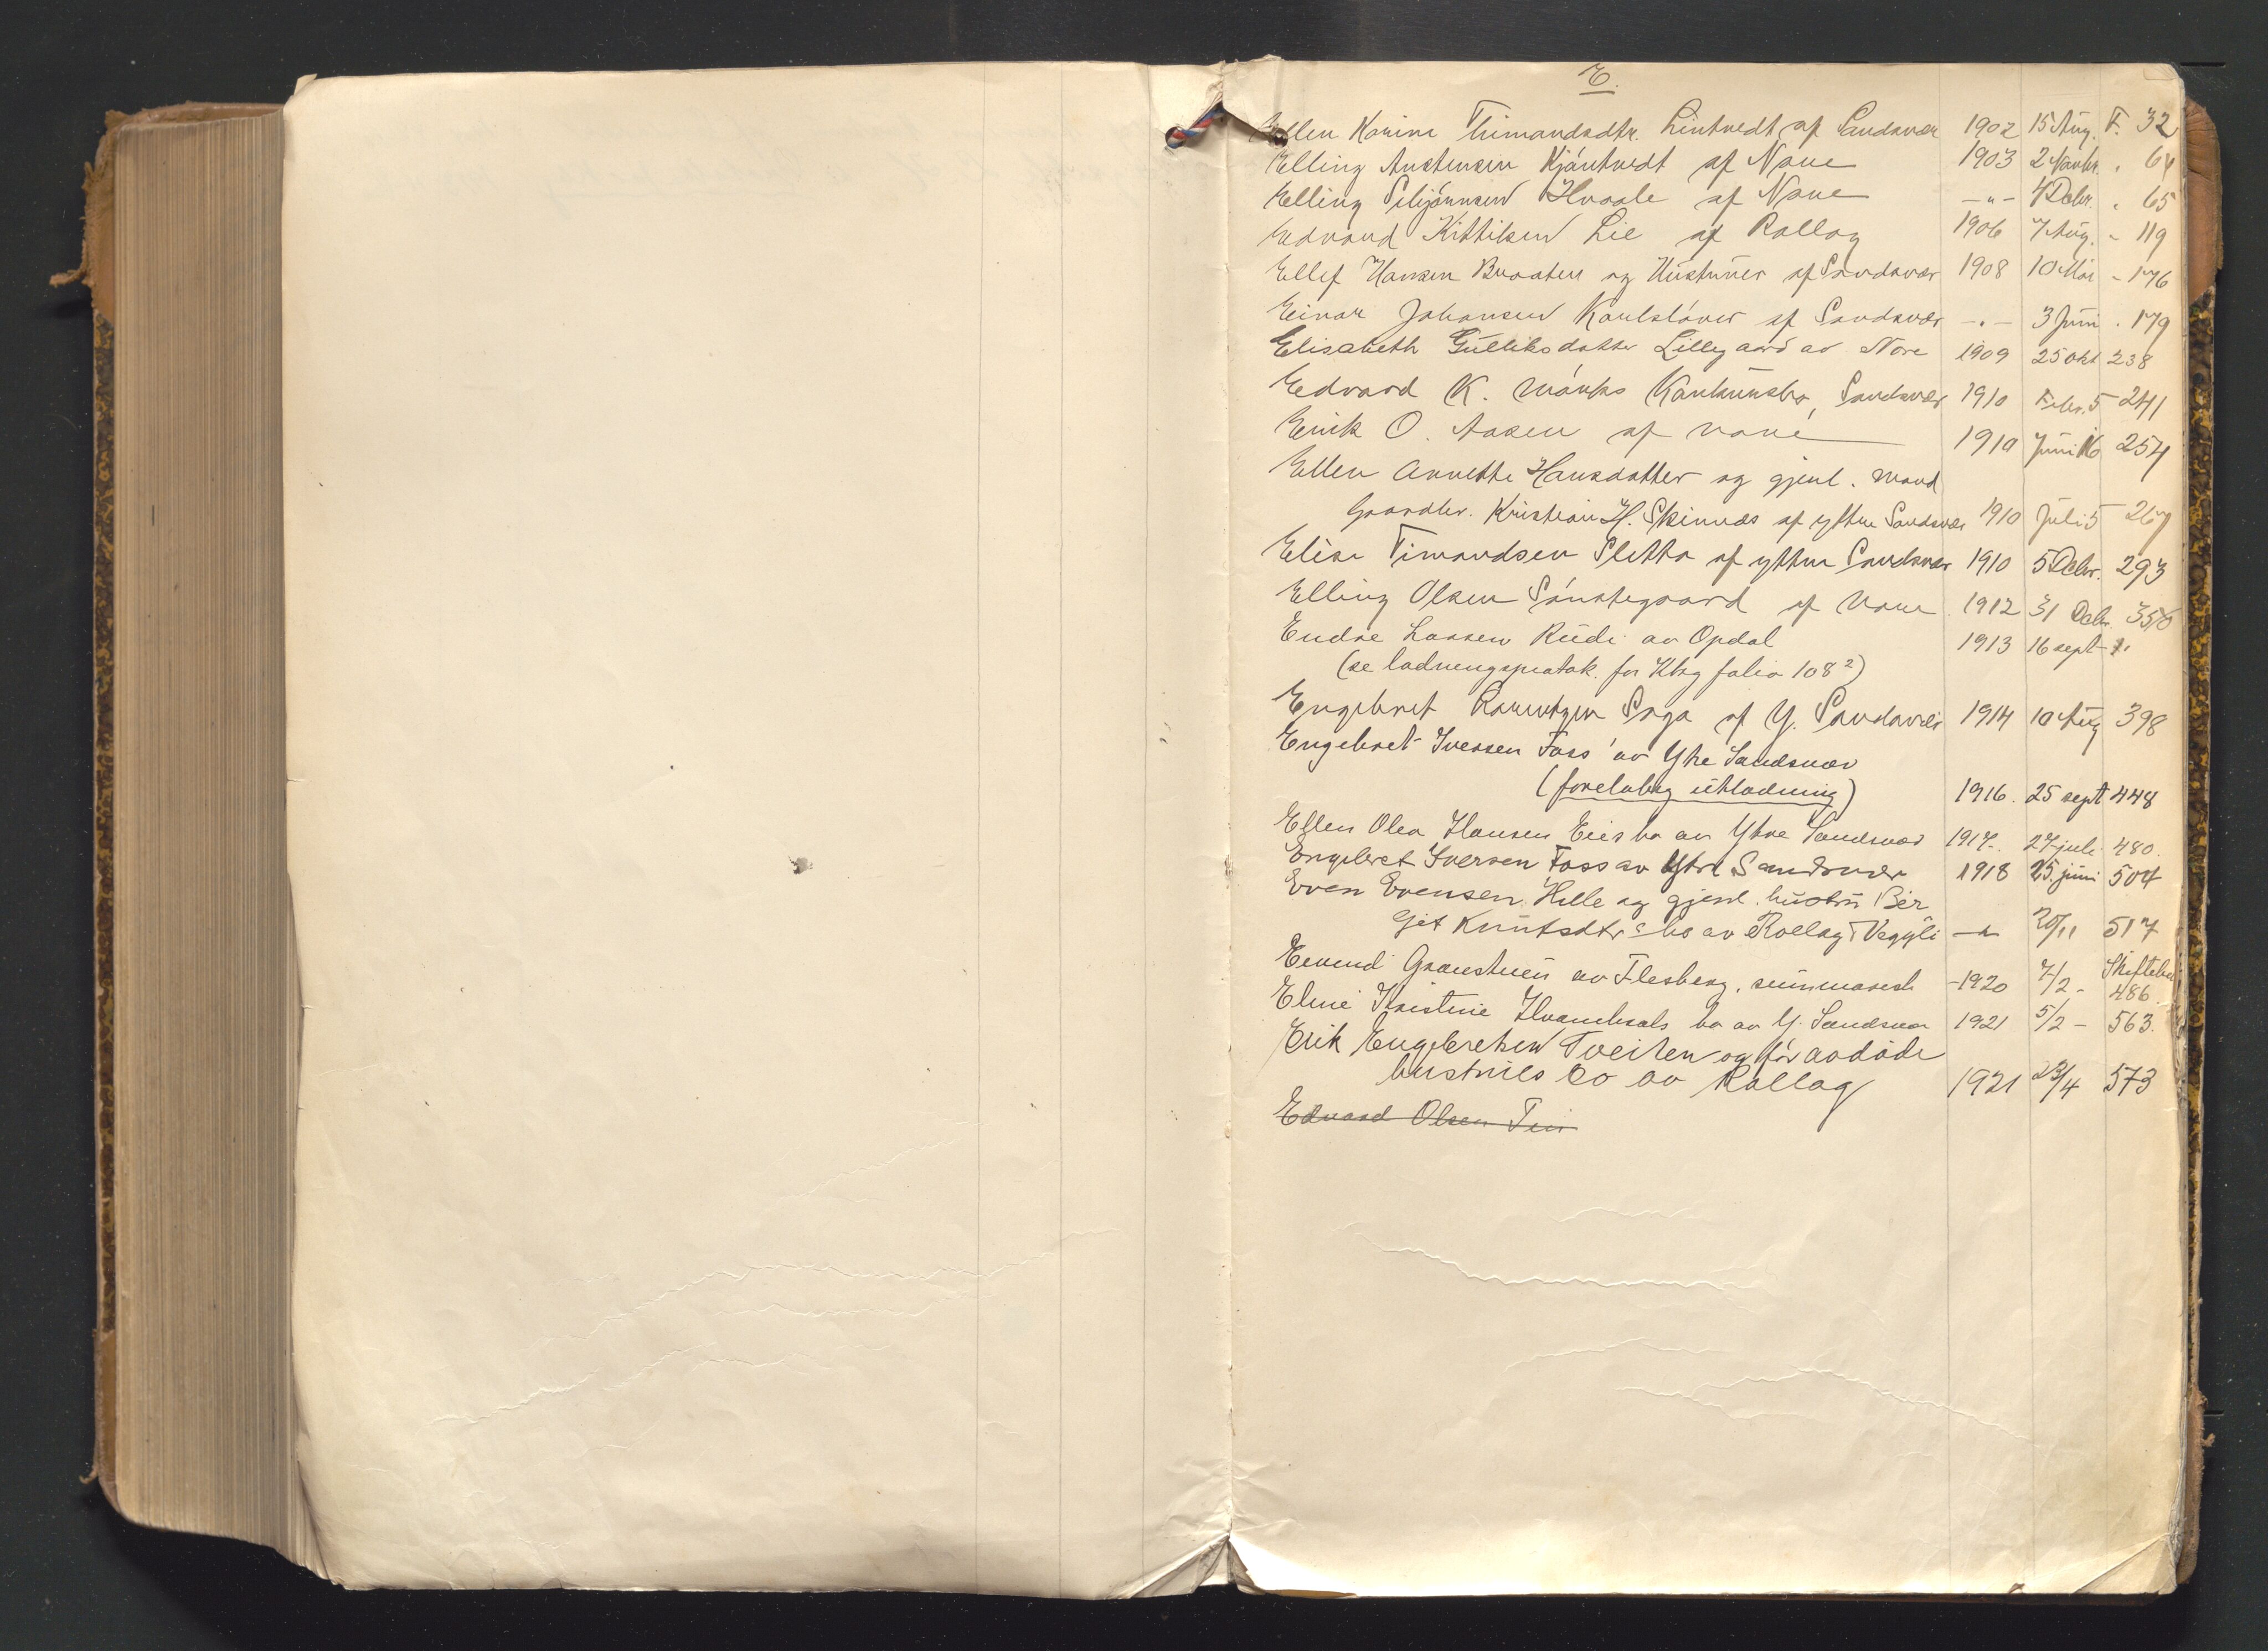 E.
Ellen Karine Thimandsdtr. Lintvedt af Sandsvær 1902 15 Aug. F. 32
Elling Austensen Kjøntvedt af Nore 1903 2 Novbr. " 64
Elling Hvaale af Nore -"- 4 Debr. " 65
Edvard Kittilsen Lie af Rollag 1906 7 Aug. " 119
Ellef Hansen Braaten og Hustrues af Sandsvær 1908 10 Mai " 176
Einar Johansen af Sandsvær -"- 3 Juni " 179
Elisabeth Gulliksdatter Lillegaard av Nore 1909 25 Okt 238
Edvard K. Mørks Sandsvær 1910 Febr. 5 241
Erik O. Aasen af Nore 1910 Juni 16 254
Ellen Annette Hansdatter og gjenl. Mand
Gaardbr. Kristian H. Skinnes af yttre Sandsvær 1910 Juli 5 267
Elise Timandsen Sletta af yttre Sandsvær 1910 5 Debr. 293
Elling Olsen Sønstegaard af Nore 1912 31 Debr. 356
Endre Larsen Rudi av Opdal 1913 16 sept
(se ladningsprotok. for Kbg folio 108²)
Engebret Lorentzen Saga af Y. Sandsvær 1914 10 Aug 398
Engebret Iversen Foss av Ytre Sandsvær
(foreløbig utlodning) 1916. 25 sept 448
Ellen Olea Hansen Eies bo av Ytre Sandsvær 1917. 27 juli 480.
Engebret Iversen Foss av Ytre Sandsvær 1918 25. juni 504
Even Evensen Helle og gjenl. hustru Bir
git Knutsdtr.s bo av Rollag, Veggli -"- 20/11 517
Eivind Graastuen av Flesberg, summarisk -1920 7/2 - Skiftebeh 486.
Eline Kristine Hvambsals bo av Y. Sandsvær 1921 5/2 - 563.
Erik Engebretsen Tveiten og før avdøde
hustrues bo av Rollag 1921 23/4 573
Edvard Olsen